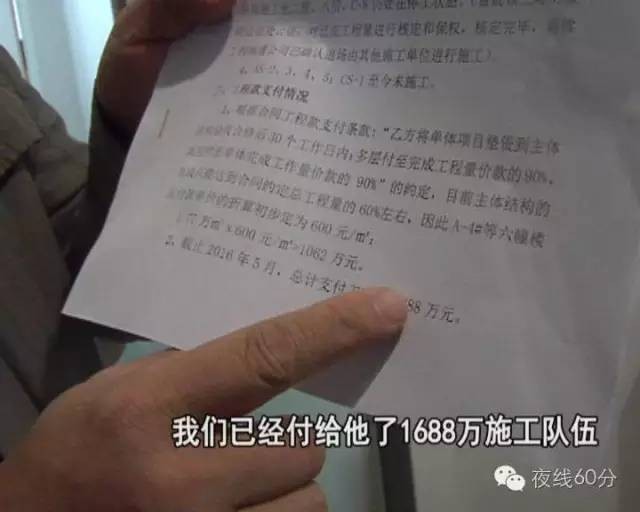 对已完工程量进行核定和保权，核定完毕，
公司已确认退场由其他施工单位进行施工）
4、AS-2、3、4、5；CS-1至今未施工。
工程款支付情况
1、根据合同工程款支付条款：“乙方将单体项目垫资到主体
合格后30个工作日内；多层付至完成工程量价款的90%，
单体完成工作量价款的90%”的约定，目前主体结构的
达到合同约定总工程量的60%左右，因此A-4#等六幢楼
付款单价的折算初步定为600元/m²；
万m²x600元/m²=1062万元。
2、截止2016年5月，总计支付 88万元。
我们已经付给他了1688万施工队伍
夜线60分